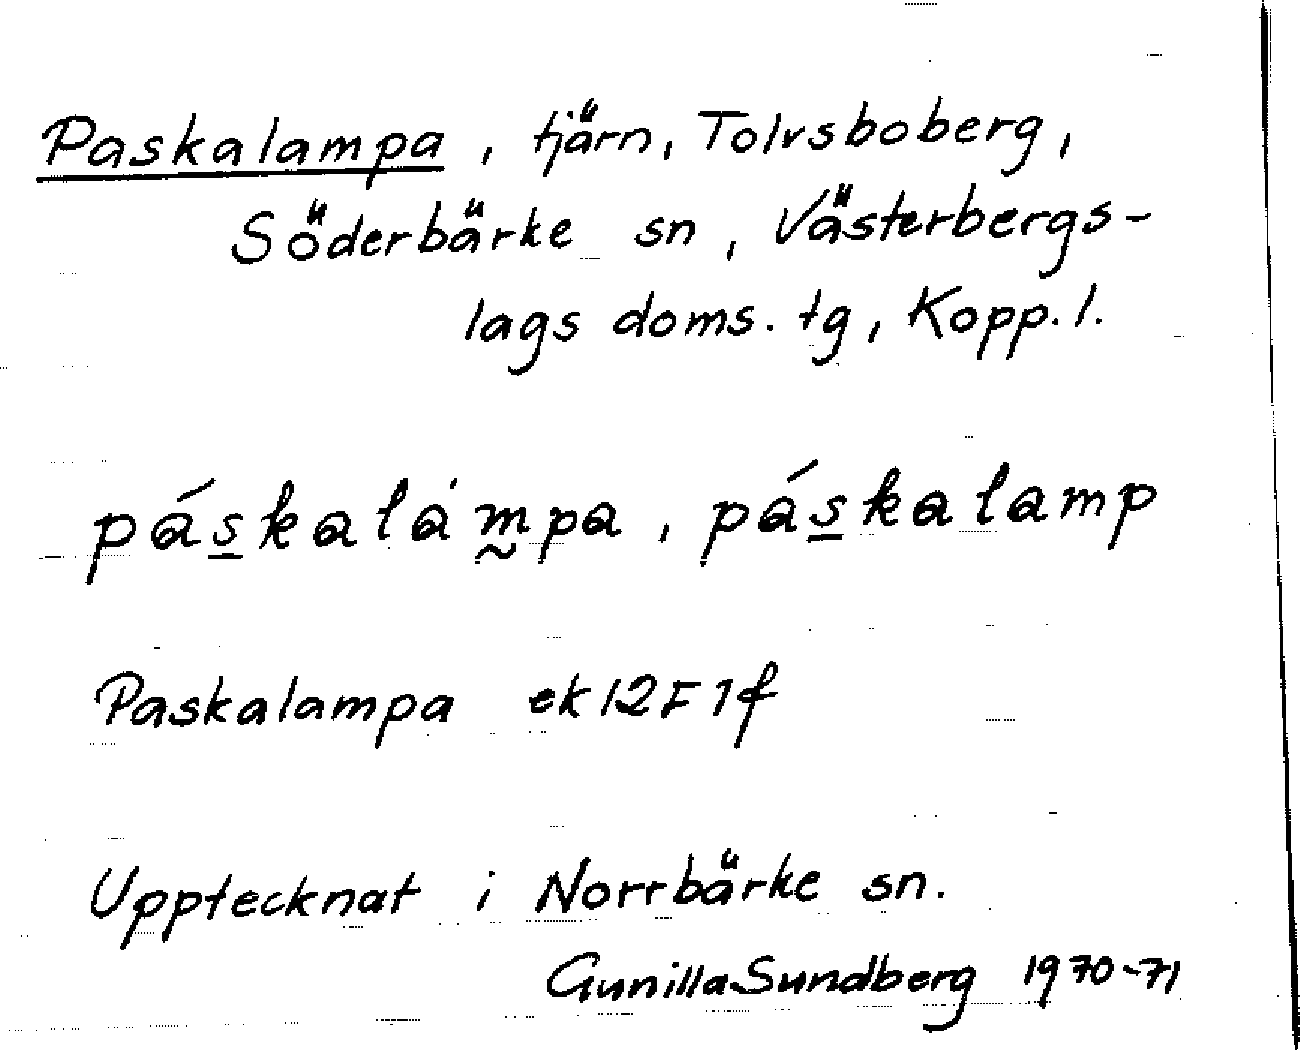 Paskalampa, tjärn, Tolvsboberg,
Söderbärke sn, Västerbergs-
lags doms. tg, Kopp. l.
pás̲kalàm̰pa, pás̲kalamp
Paskalampa ek 12F 1f
Upptecknat i Norrbärke sn.
Gunilla Sundberg 1970-71